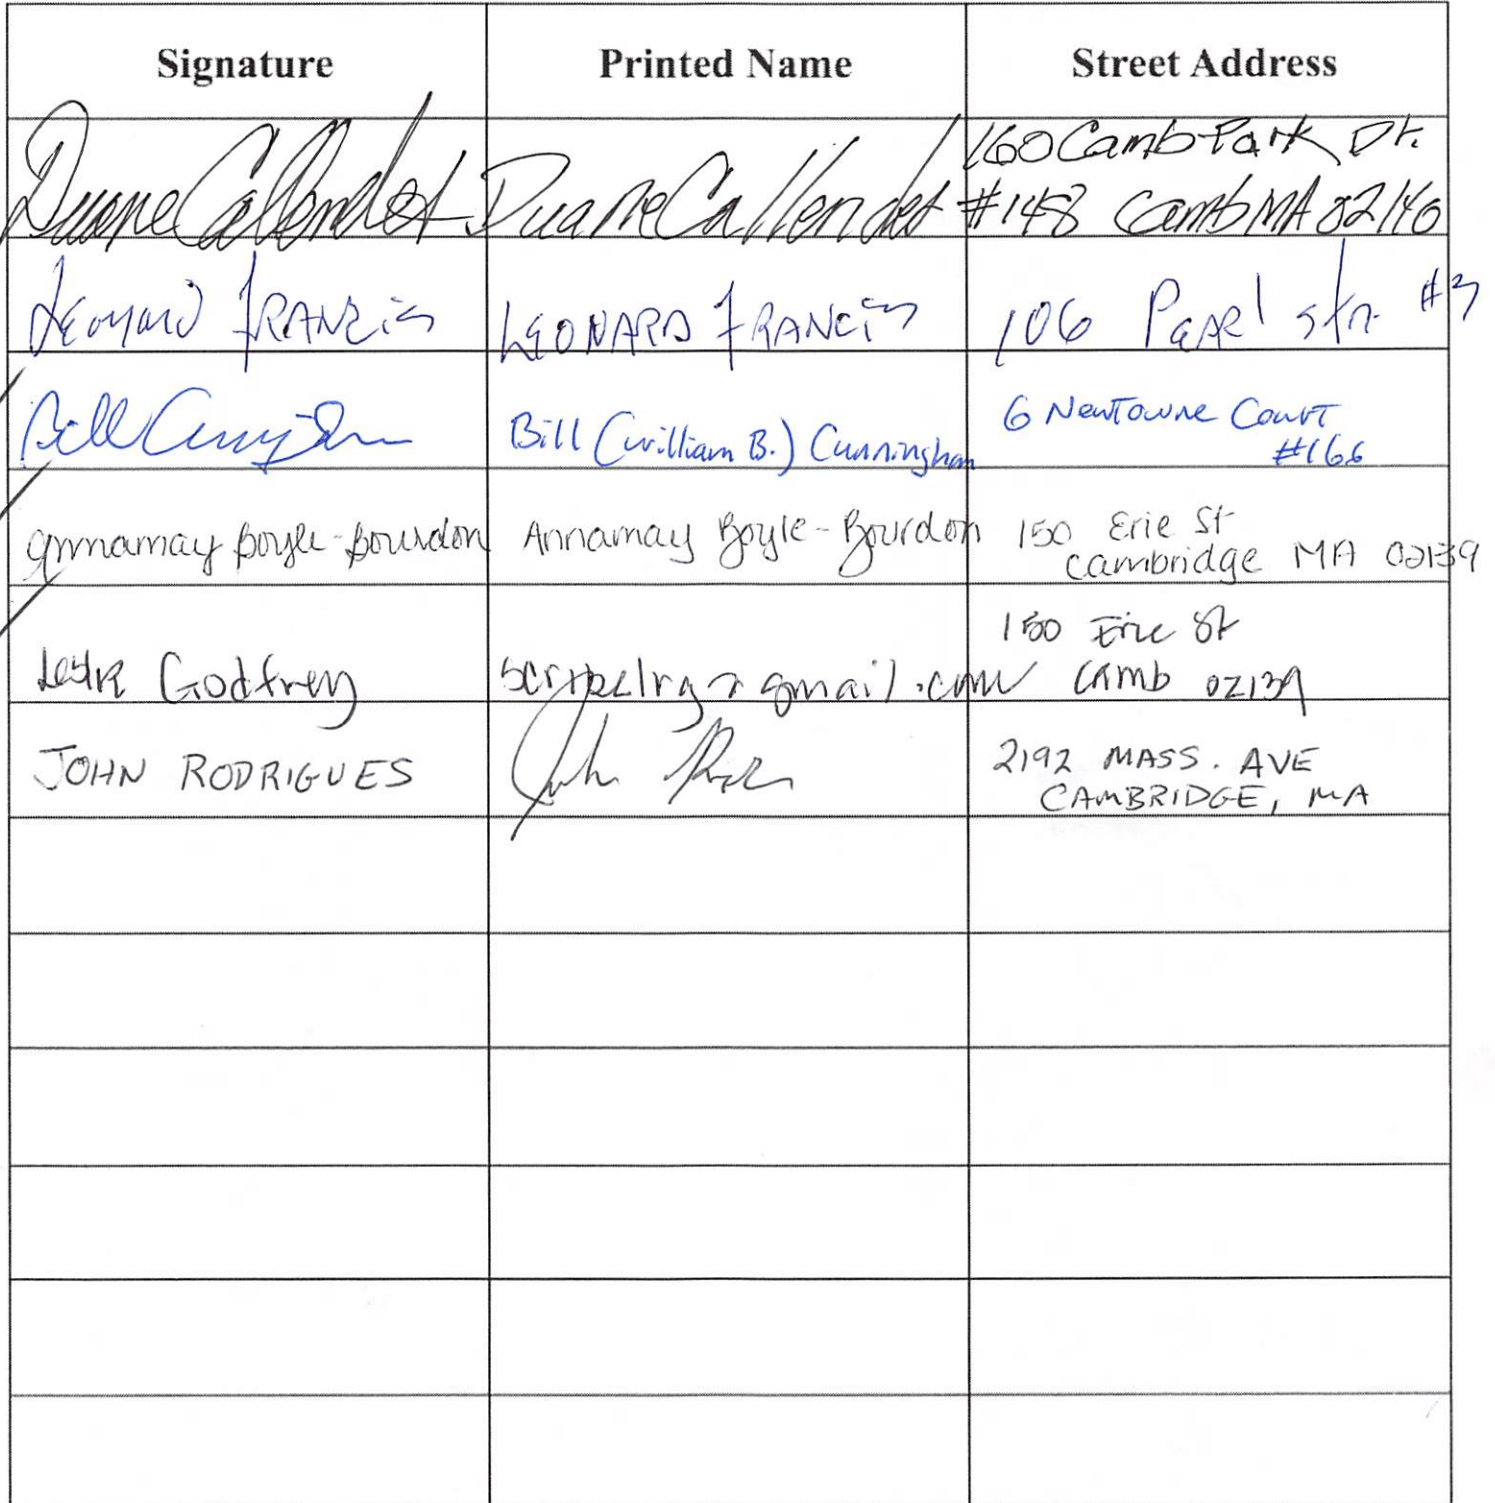 Signature Printed Name Street Address
Duane Callender Duane Callender 160 Camb Park Dr.
#148 Camb MA 02140
Leonard FRANCis LEONARD FRANCis 106 Pearl str. #3
Bill Cunningham Bill (william B.) Cunningham 6 Newtowne Court
#166
Annamay Boyle-Bourdon Annamay Boyle-Bourdon 150 Erie St
Cambridge MA 02139
150 Erie St
Godfrey gmail.com Camb 02139
JOHN RODRIGUES John 2192 MASS. AVE
CAMBRIDGE, MA